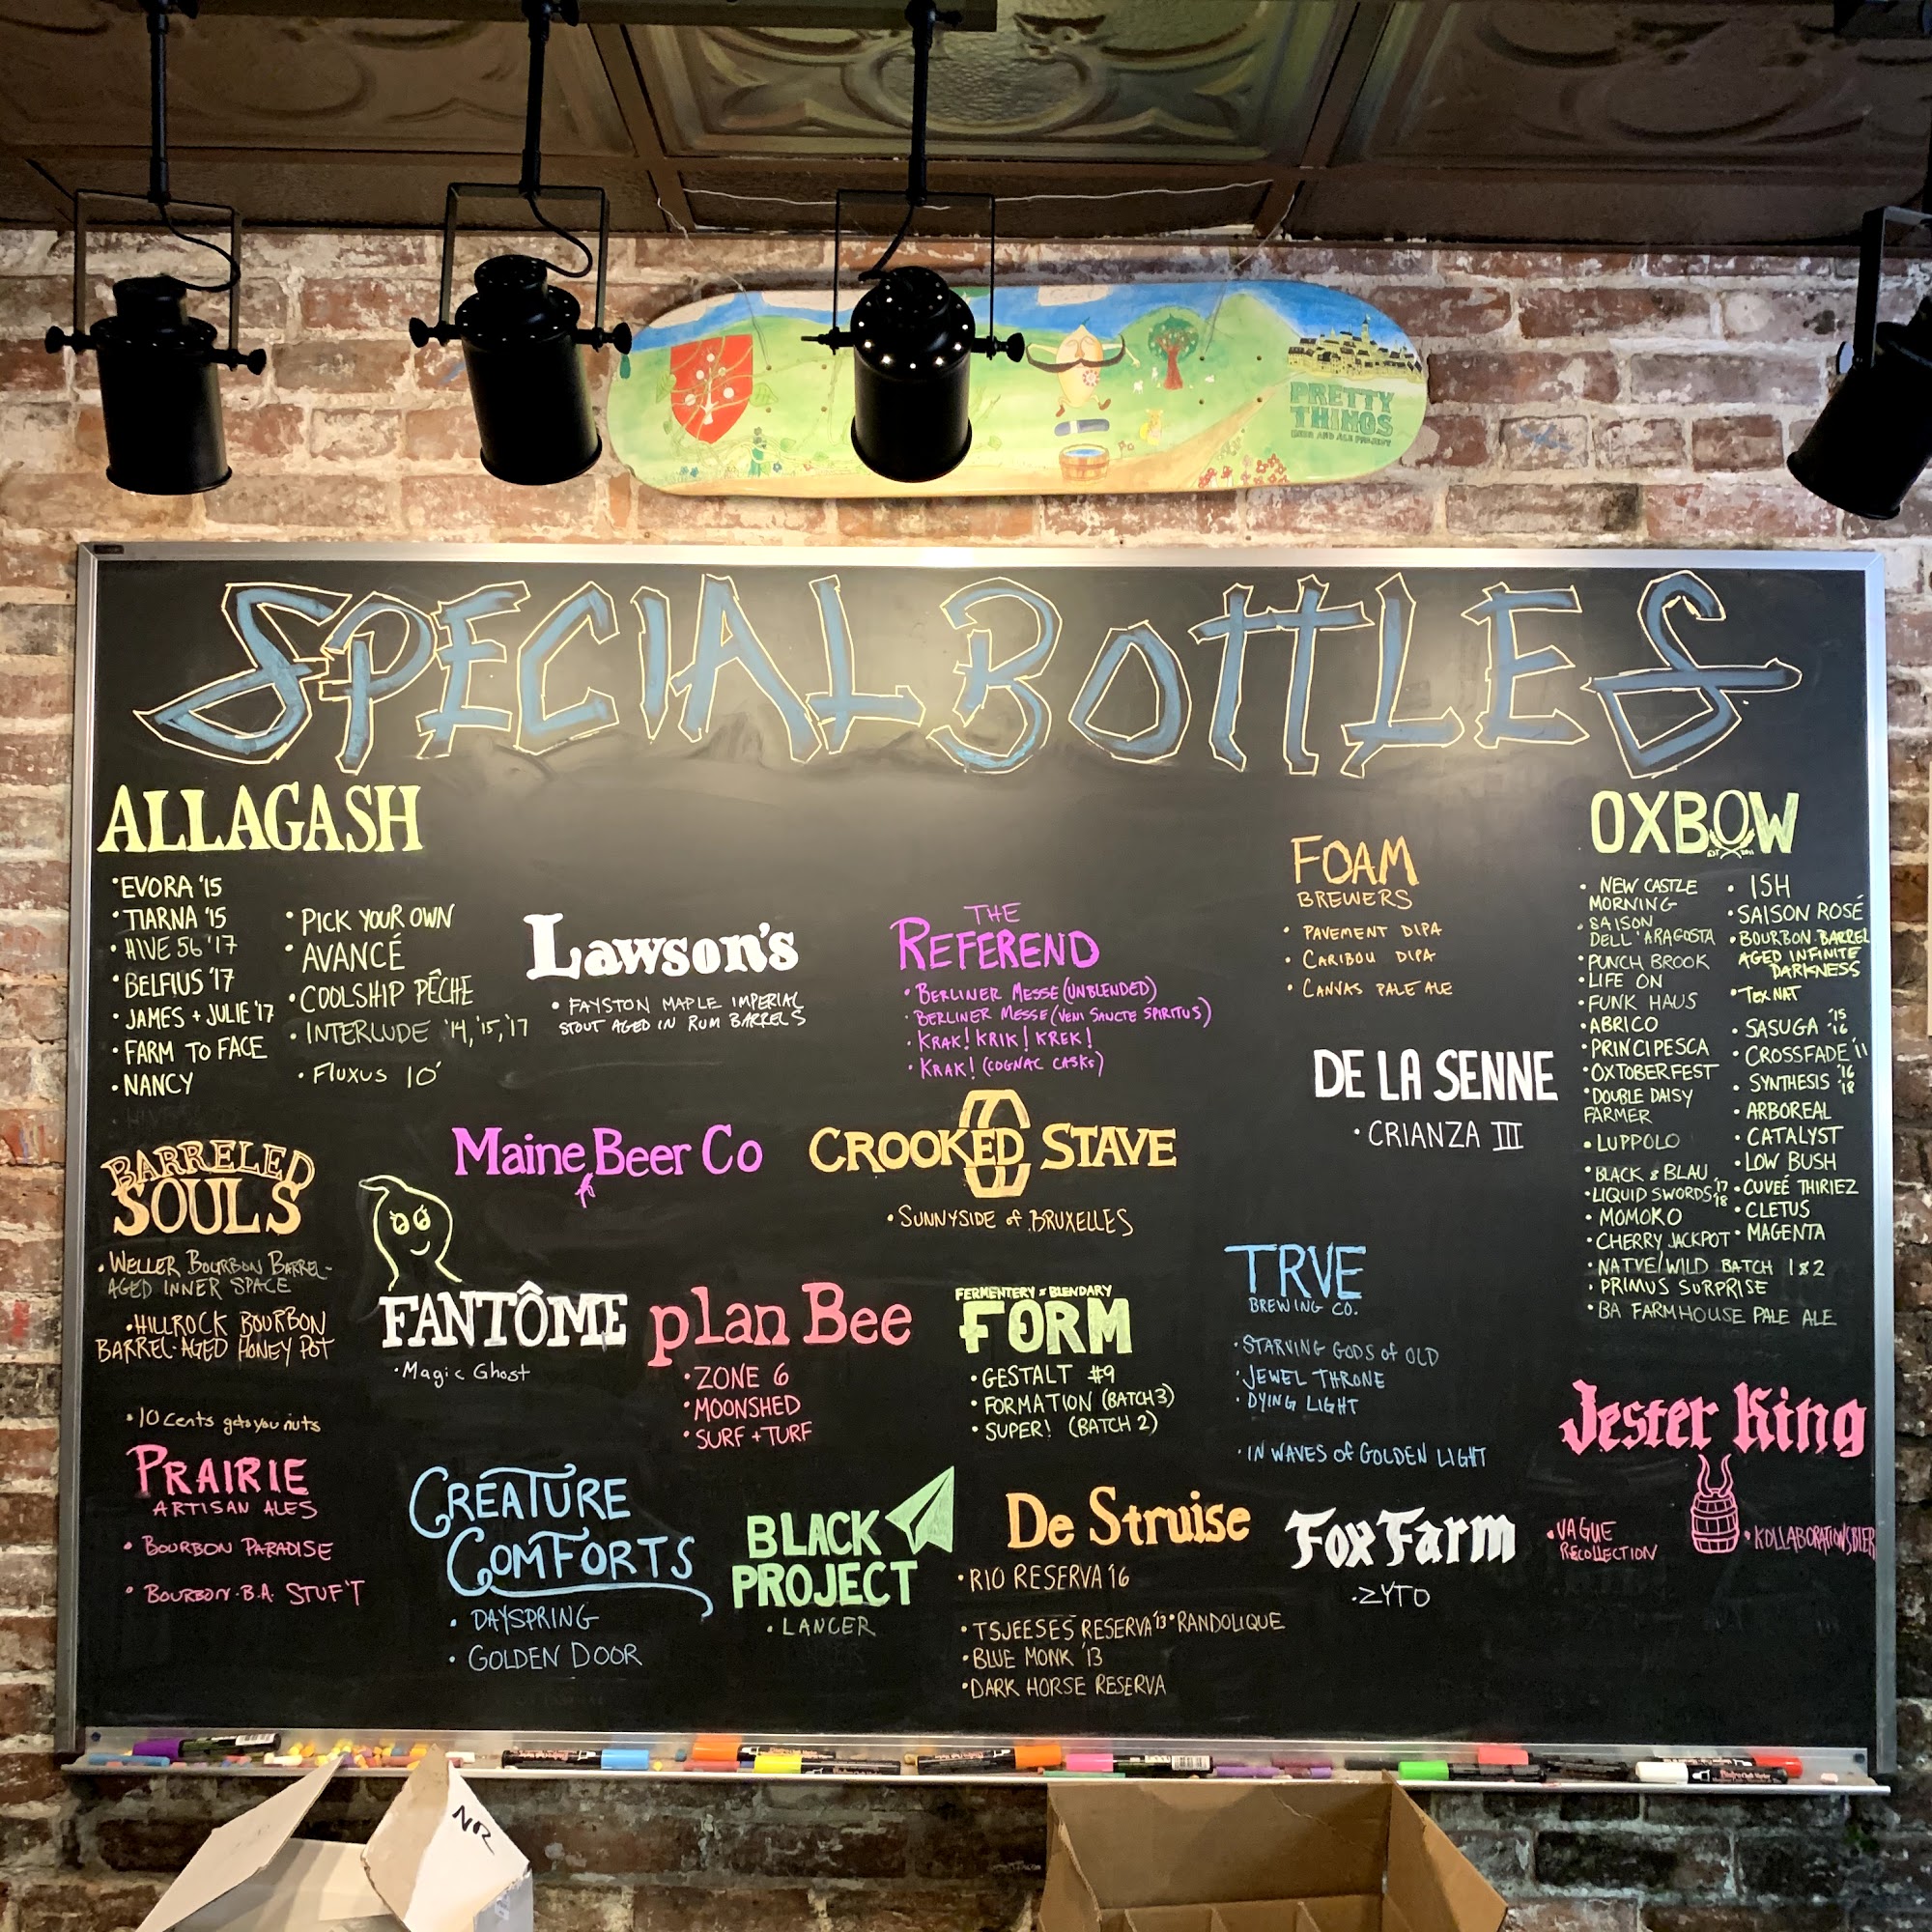 PRETTY
THINGS
BEER AND ALE PROJECT
SPECIAL BOTTLES
ALLAGASH
• EVORA '15
• TIARNA '15
• HIVE 56 '17
• BELFIUS '17
• JAMES + JULIE '17
• FARM TO FACE
• NANCY
• PICK YOUR OWN
• AVANCÉ
• COOLSHIP PÊCHE
• INTERLUDE '14, '15, '17
• FLUXUS 10'
Lawson's
• FAYSTON MAPLE IMPERIAL
STOUT AGED IN RUM BARRELS
THE
REFEREND
• BERLINER MESSE (UNBLENDED)
• BERLINER MESSE (VENI SANCTE SPIRITUS)
• KRAK! KRIK! KREK!
• KRAK! (COGNAC CASKS)
FOAM
BREWERS
• PAVEMENT DIPA
• CARIBOU DIPA
• CANVAS PALE ALE
DE LA SENNE
• CRIANZA III
OXBOW
• NEW CASTLE
MORNING
• SAISON
DELL'ARAGOSTA
• PUNCH BROOK
• LIFE ON
• FUNK HAUS
• ABRICO
• PRINCIPESCA
• OXTOBERFEST
• DOUBLE DAISY
FARMER
• LUPPOLO
• BLACK & BLAU
• LIQUID SWORDS '17 '18
• MOMOKO
• CHERRY JACKPOT
• NATVE/WILD BATCH 1 & 2
• PRIMUS SURPRISE
• BA FARMHOUSE PALE ALE
• ISH
• SAISON ROSÉ
• BOURBON BARREL
AGED INFINITE
DARKNESS
• TEX NAT
• SASUGA '15 '16
• CROSSFADE '11
• SYNTHESIS '16 '18
• ARBOREAL
• CATALYST
• LOW BUSH
• CUVEÉ THIRIEZ
• CLETUS
• MAGENTA
BARRELED
SOULS
• WELLER BOURBON BARREL-
AGED INNER SPACE
• HILLROCK BOURBON
BARREL-AGED HONEY POT
• 10 cents gets you nuts
Maine Beer Co
CROOKED STAVE
• SUNNYSIDE of BRUXELLES
FANTÔME
• Magic Ghost
plan Bee
• ZONE 6
• MOONSHED
• SURF + TURF
FERMENTERY & BLENDARY
FORM
• GESTALT #9
• FORMATION (BATCH 3)
• SUPER! (BATCH 2)
TRVE
BREWING CO.
• STARVING GODS of OLD
• JEWEL THRONE
• DYING LIGHT
• IN WAVES of GOLDEN LIGHT
Jester King
• VAGUE
RECOLLECTION
• KOLLABORATIONSBIER
PRAIRIE
ARTISAN ALES
• BOURBON PARADISE
• BOURBON B.A. STUF'T
CREATURE
COMFORTS
• DAYSPRING
• GOLDEN DOOR
BLACK
PROJECT
• LANCER
De Struise
• RIO RESERVA '16
• TSJEESES RESERVA '13 • RANDOLIQUE
• BLUE MONK '13
• DARK HORSE RESERVA
Fox Farm
• ZYTO
NR